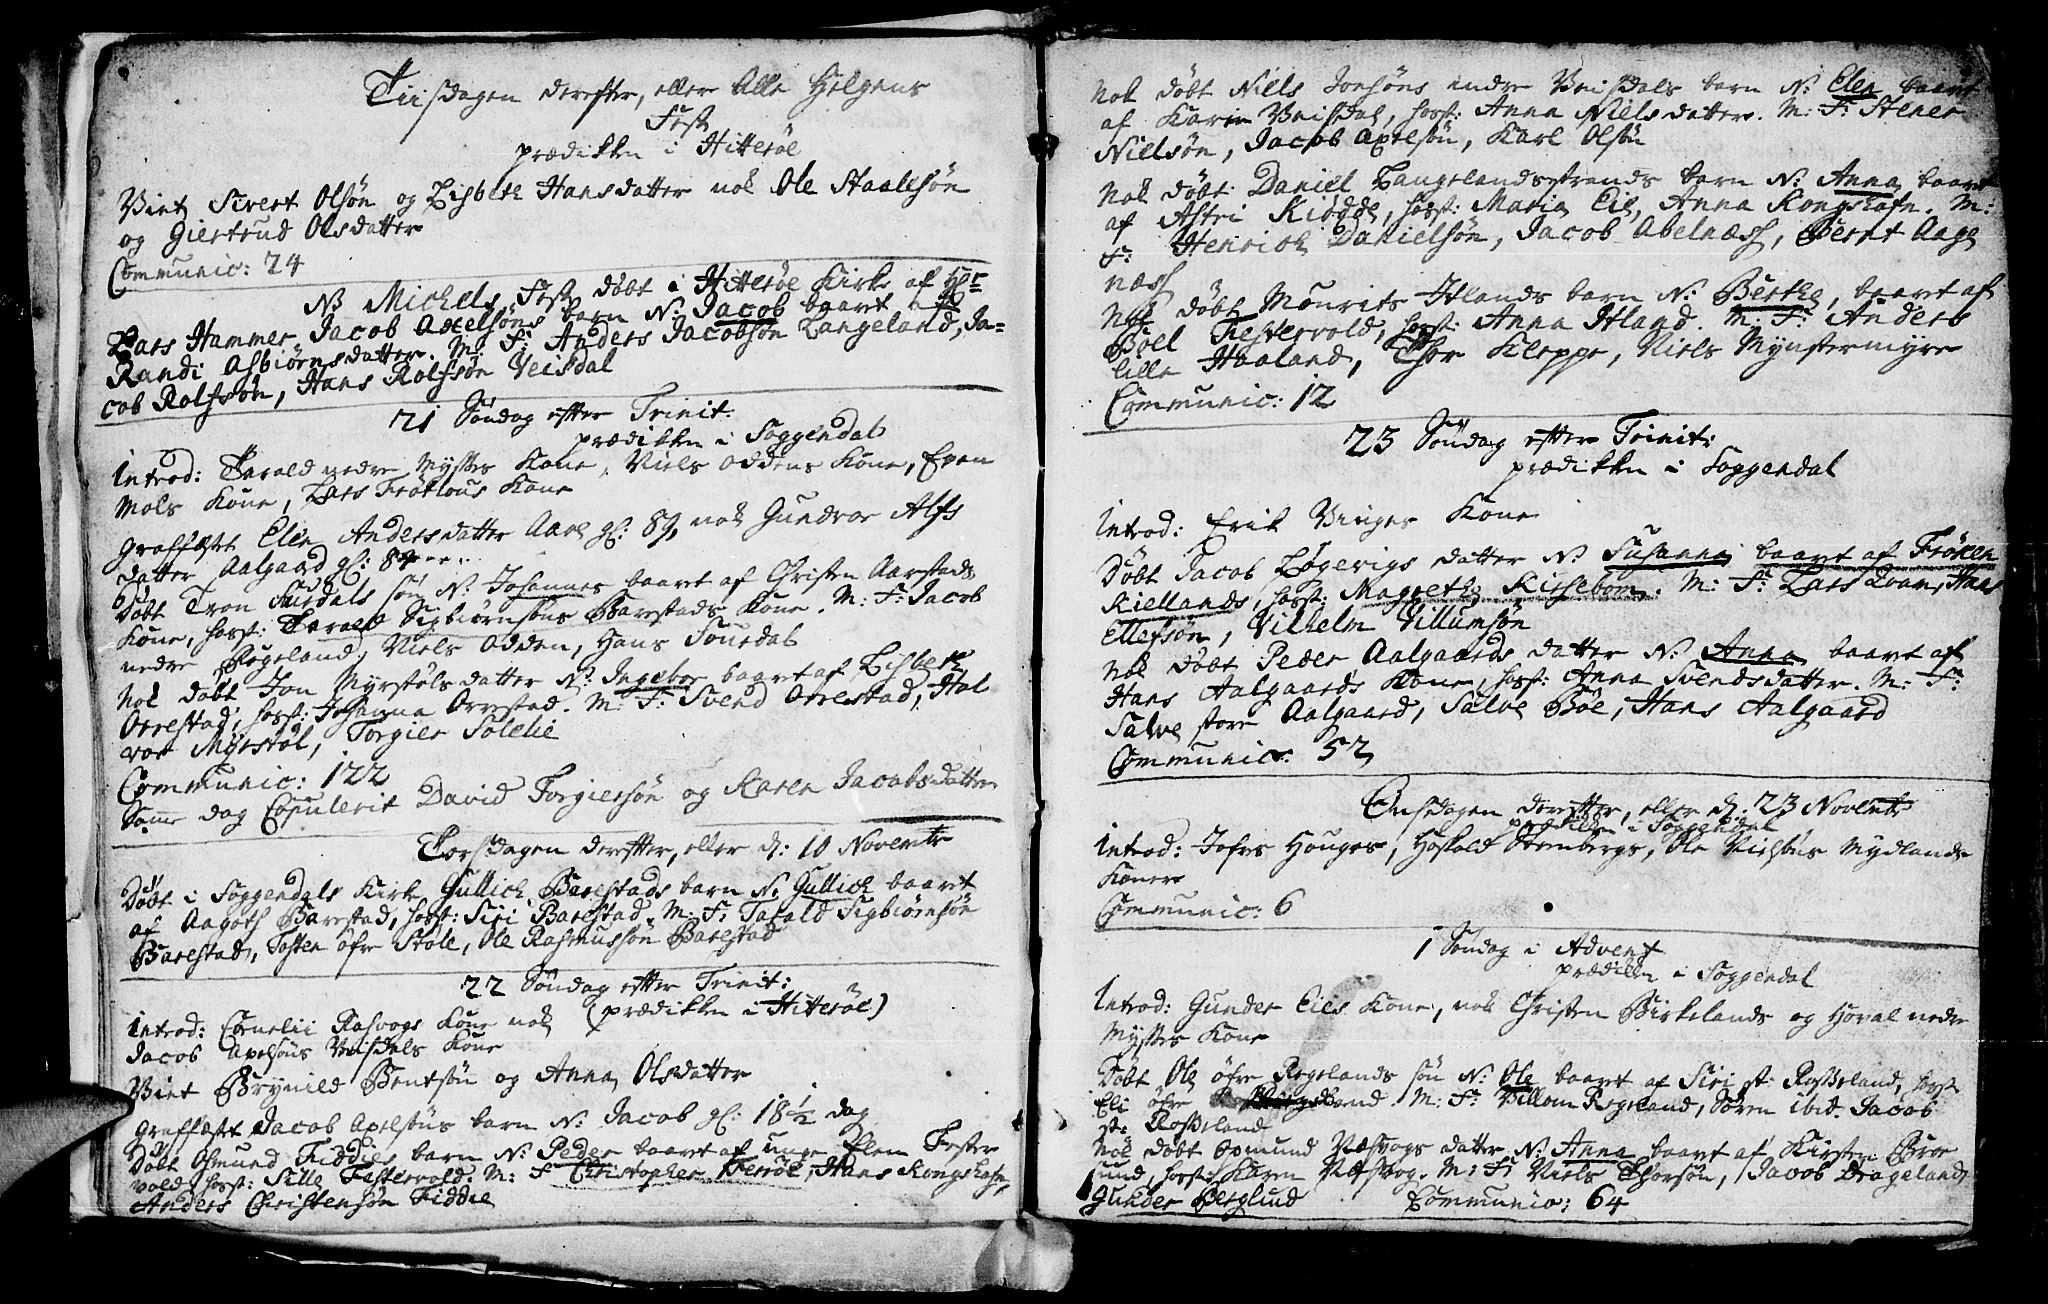 Tiisdagen derefter, eller Alle Helgens
Fest
prædikken i Hitterøe
Viet Sivert Olsøn og Lisbete Hansdatter nok Ole Staalesøn
og Giertrud Olsdatter
Communic: 24
NB Michels Fest døbt i Hitterøe Kirke af Hr
Lars Hammer Jacob Axelsøns barn N: Jacob baaret af
Randi Asbiørnsdatter. M: F: Anders Jacobsøn Langeland, Ja=
cob Rolfsøn, Hans Rolfsøn Veisdal
21 Søndag efter Trinit:
prædikken i Soggendal
Introd: Tarald nedre Mysses Kone, Niels Oddens Kone, Even
Mols Kone, Lars Frøtlous Kone
Graffæstet Elen Andersdatter Aare gl: 89, nok Gundvor Alfs
datter Aalgaard gl: 84
Døbt Tron Surdals søn N: Johannes baaret af Christen Aarstads
Kone, horst: Tarald Sigbiørnsøns Barestads Kone. M: F: Jacob
nedre Regeland, Niels Odden, Hans Souedal
Nok døbt Jon Myrstøls datter N: Ingebor baaret af Lisbeth
Orrestad, horst: Johanna Orrestad. M: F: Svend Orrestad, Hal
vor Myrstøl, Torgier Solelie
Communic: 122
Samme dag Copulerit David Torgiersøn og Karen Jacobsdatter
Torsdagen derefter, eller d: 10 Novembr
Døbt i Soggendals Kirke Gullich Barestads barn N: Gullich baaret
af Aagoth Barestad, horst: Siri Barestad. M: F: Tarald Sigbiørnsøn
Barestad, Tosten øfre Stole, Ole Rasmussøn Barestad
22 Søndag efter Trinit:
(prædikken i Hitterøe)
Introd: Cornelii Rasvogs Kone nok
Jacob Axelsøns Veisdals Kone
Viet Brynild Bentsøn og Anna Olsdatter
Graffæstet Jacob Axelsøns barn N: Jacob gl: 18 1/2 dag
Døbt Osmund Fiddies barn N: Peder baaret af unge Elen Fester
vold, horst: Sille Festervold. M: F Christopher Terøe, Hans Kongshafn,
Anders Christensøn Fiddie
Nok døbt Niels Joensøns indre Veisdals barn N: Elen baaret
af Karin Veisdal, horst: Anna Nielsdatter. M: F: Stener
Nielsøn, Jacob Axelsøn, Karl Olsøn
Nok døbt Daniel Langelandsstrands barn N: Anna baaret
af Astri Kiødde, horst: Maria Eie, Anna Kongshafn. M:
F: Henrich Danielsøn, Jacob Abelnæss, Bernt Aage
næss
Nok døbt Mourits Itlands barn N: Berthe, baaret af
Boel Festervold, horst: Anna Itland. M: F: Anders
lille Haaland, Thor Kleppe, Niels Mynstermyre
Communic: 12
23 Søndag efter Trinit:
prædikken i Soggendal
Introd: Erik Vinges Kone
Døbt Jacob Løgevigs datter N: Susanna baaret af Frøken
Kiellands, horst: Magrethe Kirsebom. M: F: Lars Evan, Hans
Ellefsøn, Vilhelm Villumsøn
Nok døbt Peder Aalgaards datter N: Anna baaret af
Hans Aalgaards Kone, horst: Anna Svendsdatter. M: F:
Salve store Aalgaard, Salve Bøe, Hans Aalgaard
Communic: 52
Onsdagen derefter, eller d: 23 Novembr
prædikken i Soggendal
Introd: Jofrs Houges, Haskold Stenbergs, Ole Nielsøns Mydlands
Koner
Communic: 6
1 Søndag i Advent
prædikken i Soggendal
Introd: Gunder Eies Kone, nok Christen Birkelands og Hoval nedre
Mysses Kone
Døbt Ole øfre Regelands søn N: Ole baaret af Siri st: Rosseland, horst
Eli øfre Regeland. M: F: Villom Regeland, Søren ibid. Jacob
st: Rosseland
Nok døbt Osmund Næsvogs datter N: Anna baaret af Kirsten Bror
uund, horst: Karen Næsvog. M: F: Niels Thorsøn, Jacob Drageland,
Gunder Berglund Communic: 64